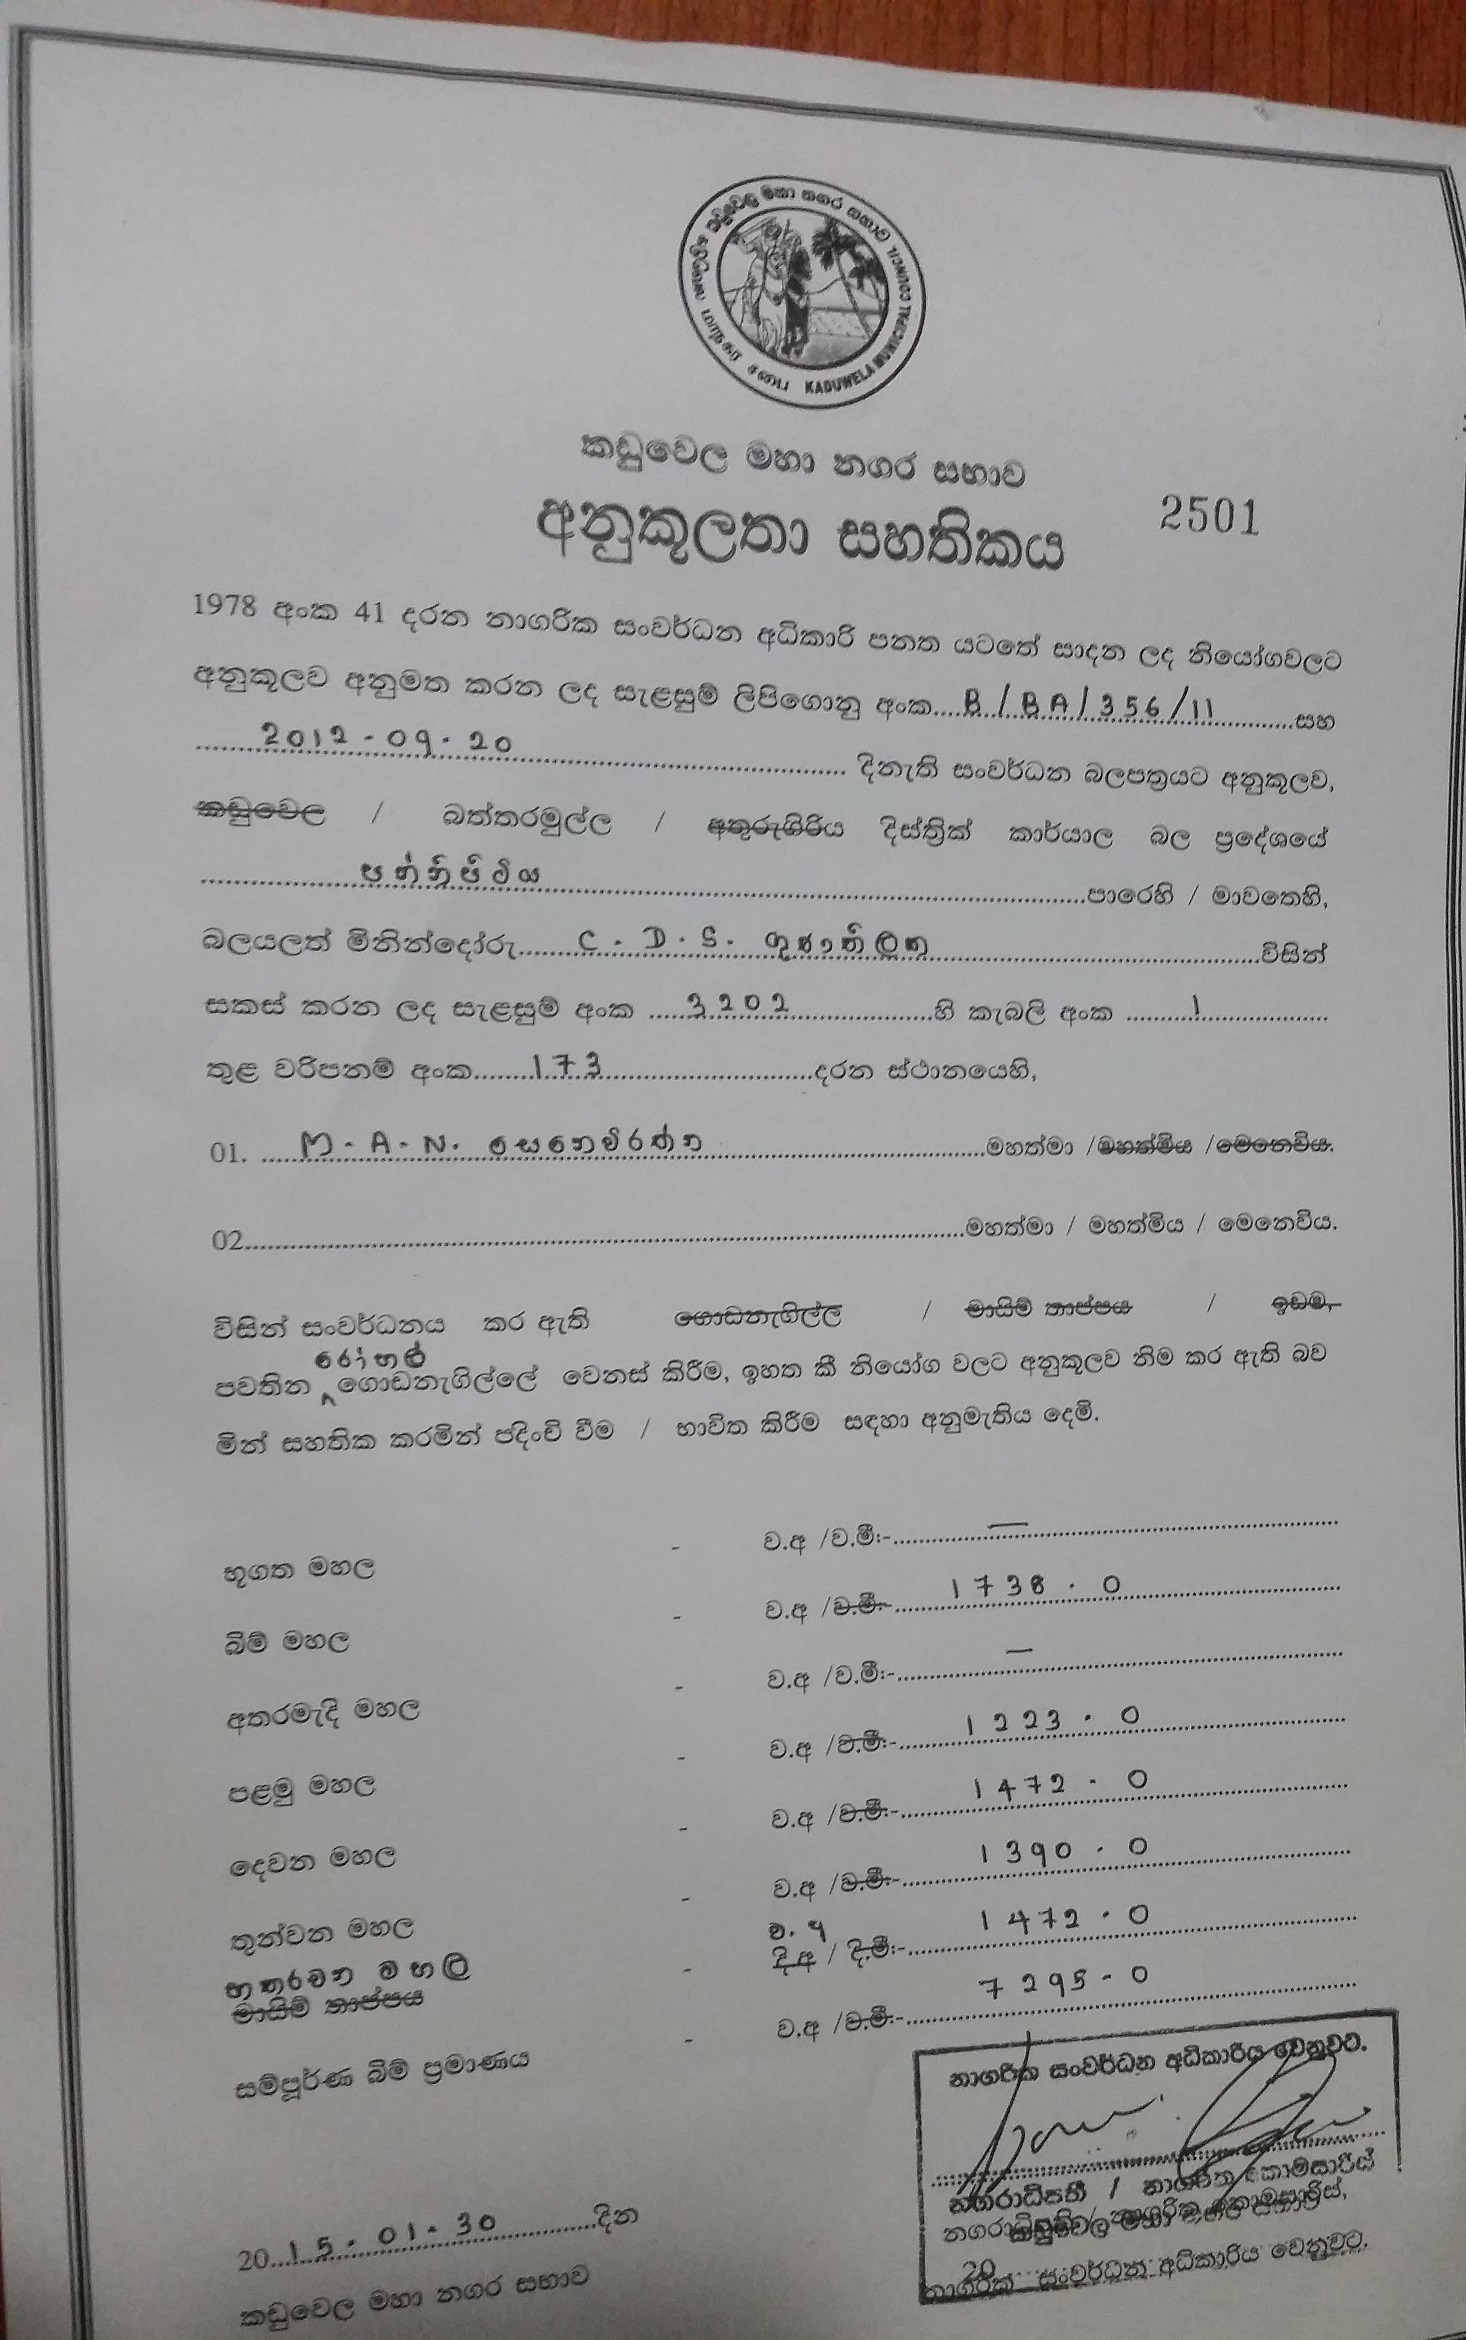 කඩුවෙල මහා නගර සභාව
KADUWELA MUNICIPAL COUNCIL
கடுவெல மாநகர சபை
කඩුවෙල මහා නගර සභාව
අනුකූලතා සහතිකය 2501
1978 අංක 41 දරන නාගරික සංවර්ධන අධිකාරි පනත යටතේ සාදන ලද නියෝගවලට
අනුකූලව අනුමත කරන ලද සැළසුම් ලිපිගොනු අංක....B/BA/356/11....සහ
....2012-09-20.... දිනැති සංවර්ධන බලපත්‍රයට අනුකූලව,
කඩුවෙල / බත්තරමුල්ල / අතුරුගිරිය දිස්ත්‍රික් කාර්යාල බල ප්‍රදේශයේ
....පන්නිපිටිය....පාරෙහි / මාවතෙහි,
බලයලත් මිනින්දෝරු....C. D. S. ගුණතිලක....විසින්
සකස් කරන ලද සැළසුම් අංක ....3202....හි කැබලි අංක ....1....
තුළ වරිපනම් අංක....173....දරන ස්ථානයෙහි,
01. ....M. A. N. සෙනෙවිරත්න....මහත්මා /මහත්මිය /මෙනෙවිය.
02....මහත්මා / මහත්මිය / මෙනෙවිය.
විසින් සංවර්ධනය කර ඇති ගොඩනැගිල්ල / මායිම් තාප්පය / ඉඩම,
රෝහල්
පවතින ගොඩනැගිල්ලේ වෙනස් කිරීම, ඉහත කී නියෝග වලට අනුකූලව නිම කර ඇති බව
මින් සහතික කරමින් පදිංචි වීම / භාවිත කිරීම සඳහා අනුමැතිය දෙමි.
භූගත මහල - ව.අ /ව.මී:-....—....
බිම් මහල - ව.අ /ව.මී:-....1738.0....
අතරමැදි මහල - ව.අ /ව.මී:-....—....
පළමු මහල - ව.අ /ව.මී:-....1223.0....
දෙවන මහල - ව.අ /ව.මී:-....1472.0....
තුන්වන මහල - ව.අ /ව.මී:-....1390.0....
හතරවන මහල ව.අ
මායිම් තාප්පය - දි.අ / දි.මී:-....1472.0....
සම්පූර්ණ බිම් ප්‍රමාණය - ව.අ /ව.මී:-....7295.0....
නාගරික සංවර්ධන අධිකාරිය වෙනුවට.
නගරාධිපති / නාගරික කොමසාරිස්
නගරාධිපති / නාගරික කොමසාරිස්,
කඩුවෙල මහා නගර සභාව
20....
නාගරික සංවර්ධන අධිකාරිය වෙනුවට.
20..15.01.30....දින
කඩුවෙල මහා නගර සභාව